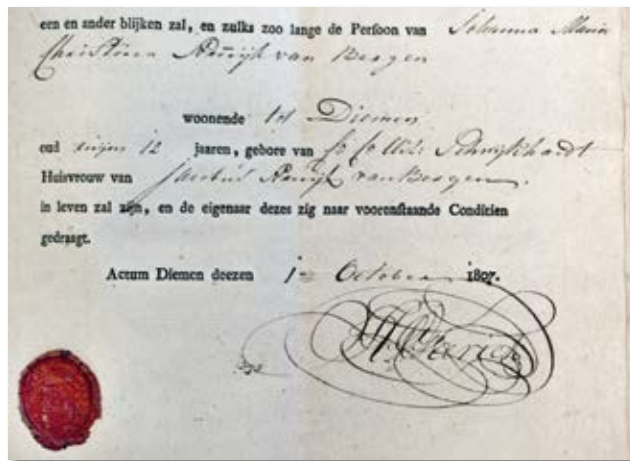 een en ander blijken zal, en zulks zoo lange de Persoon van Johanna Maria
Christina Rewijk van Bergen
woonende tot Diemen
oud ruijm 12 jaaren, gebore van Schrijkhardt
Huisvrouw van Jacobus Rewijk van Bergen.
in leven zal zijn, en de eigenaar dezes zig naar voorenstaande Conditien
gedraagt.
Actum Diemen deezen 1e October 1807.